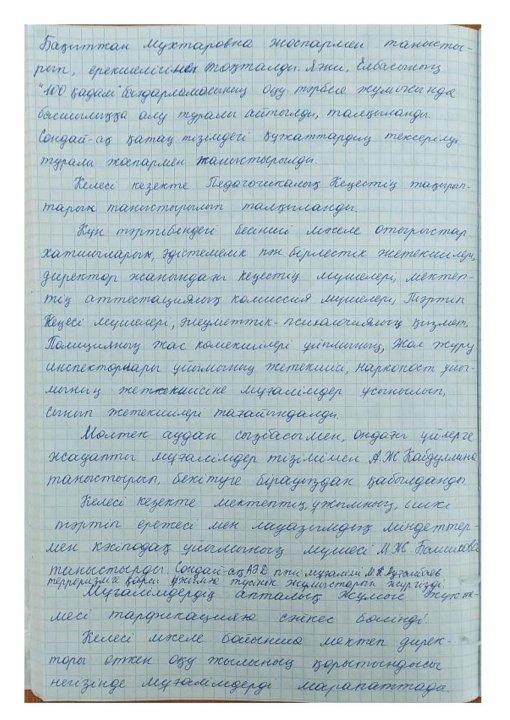 Бақытжан Мұхтаровна жоспармен танысты-
рып, ерекшелігіне тоқталды. Яғни, Елбасының
"100 қадам" бағдарламасының оқу тәрбие жұмысында
басшылыққа алу туралы айтылды, талқыланды.
Сондай-ақ қатаң тізімдегі құжаттардың тексерілуі
туралы жоспармен таныстырылды.
Келесі кезекте Педагогикалық Кеңестің тақырып-
тарын таныстырылып талқыланды.
Күн тәртібіндегі бесінші мәселе отырыстар
хатшыларын, әдістемелік пән бірлестік жетекшілері,
директор жанындағы кеңестің мүшелері, мектеп-
тің аттестациялық комиссия мүшелері, Тәртіп
Кеңесі мүшелері, әлеуметтік-психологиялық қызмет,
Полицияның жас көмекшілері ұйымының, Жол жүру
инспекторлары ұйымының жетекшісі, наркопост ұйы-
мының жетекшісіне мұғалімдер ұсынылып,
сынып жетекшілері тағайындалды.
Мөлтек аудан сызбасымен, ондағы үйлерге
жауапты мұғалімдер тізімімен А.Ж Кайдуллина
таныстырып, бекітуге бірауыздан қабылданды
Келесі кезекте мектептің, ұжымның, ішкі
тәртіп ережесі мен лауазымдық міндеттер-
мен кәсіподақ ұйымының мүшесі М.Ж
таныстырды. Сондай-ақ АӘД пәні мұғалімі М.Қ
терроризмге қарсы ұжымға түсінік жұмыстарын жүргізді.
Мұғалімдердің апталық жұмыс жүкте-
месі тарификацияға сәйкес бөлінді.
Келесі мәселе бойынша мектеп дирек-
торы өткен оқу жылының қорытындысы
негізінде мұғалімдерді марапаттады.